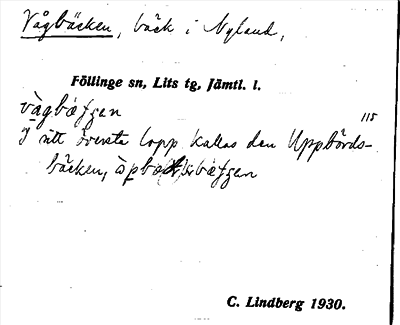 Vågbäcken, bäck i Nyland,
Föllinge sn, Lits tg, Jämtl. l.
vågbæfzen
115
I sitt översta lopp kallas den Uppbörds-
bäcken,
C. Lindberg 1930.